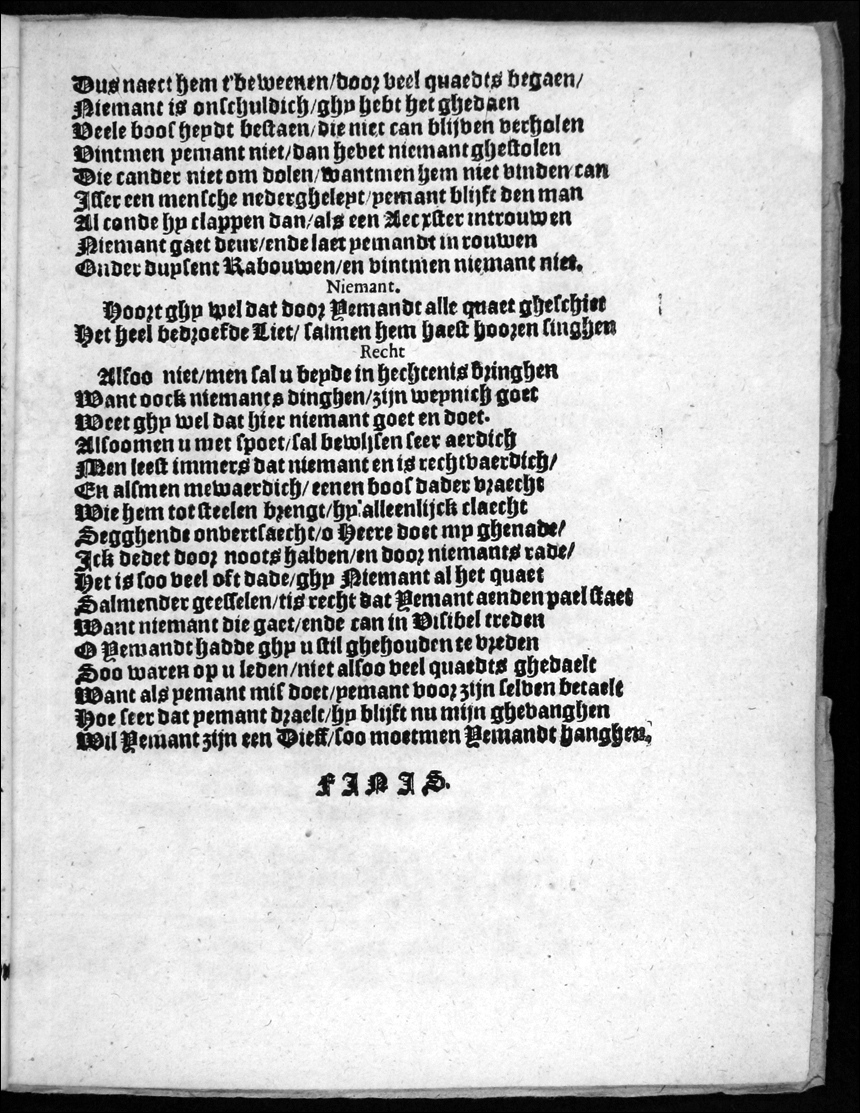 Dus naect hem t'beweenen/door veel quaedts begaen/
Niemant is onschuldich/ghy hebt het ghedaen
Veele boosheydt bestaen/die niet can blijven verholen
Vintmen yemant niet/dan hevet niemant ghestolen
Die cander niet om dolen/wantmen hem niet vinden can
Isser een mensche nederghelept/yemant blijft den man
Al conde hy clappen dan/als een Aecxster introuwen
Niemant gaet deur/ende laet yemandt in rouwen
Onder duysent Rabouwen/en vintmen niemant niet.
Niemant.
Hoort ghy wel dat door Yemandt alle quaet gheschiet
Het heel bedroefde Liet/salmen hem haest hooren singhen
Recht
Alsoo niet/men sal u beyde in hechtenis bringhen
Want oock niemants dinghen/zijn weynich goet
Weet ghy wel dat hier niemant goet en doet.
Alsoomen u met spoet/sal bewijsen seer aerdich
Men leest immers dat niemant en is rechtvaerdich/
En alsmen mewaerdich/eenen boos dader vraecht
Wie hem tot steelen brengt/hy alleenlijck claecht
Segghende onvertsaecht/o Heere doet my ghenade/
Ick dedet door noots halven/en door niemants rade/
Het is soo veel oft dade/ghy Niemant al het quaet
Salmender geesselen/tis recht dat Yemant aenden pael staet
Want niemant die gaet/ende can in Visibel treden
O Yemandt hadde ghy u stil ghehouden te vreden
Soo waren op u leden/niet alsoo veel quaedts ghedaelt
Want als yemant mis doet/yemant voor zijn selven betaelt
Hoe seer dat yemant draelt/hy blijft nu mijn ghevanghen
Wil Yemant zijn een Dieff/soo moetmen Yemandt hanghen.
FINIS.